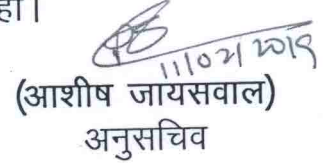 हो।
11/02/2019
(आशीष जायसवाल)
अनुसचिव